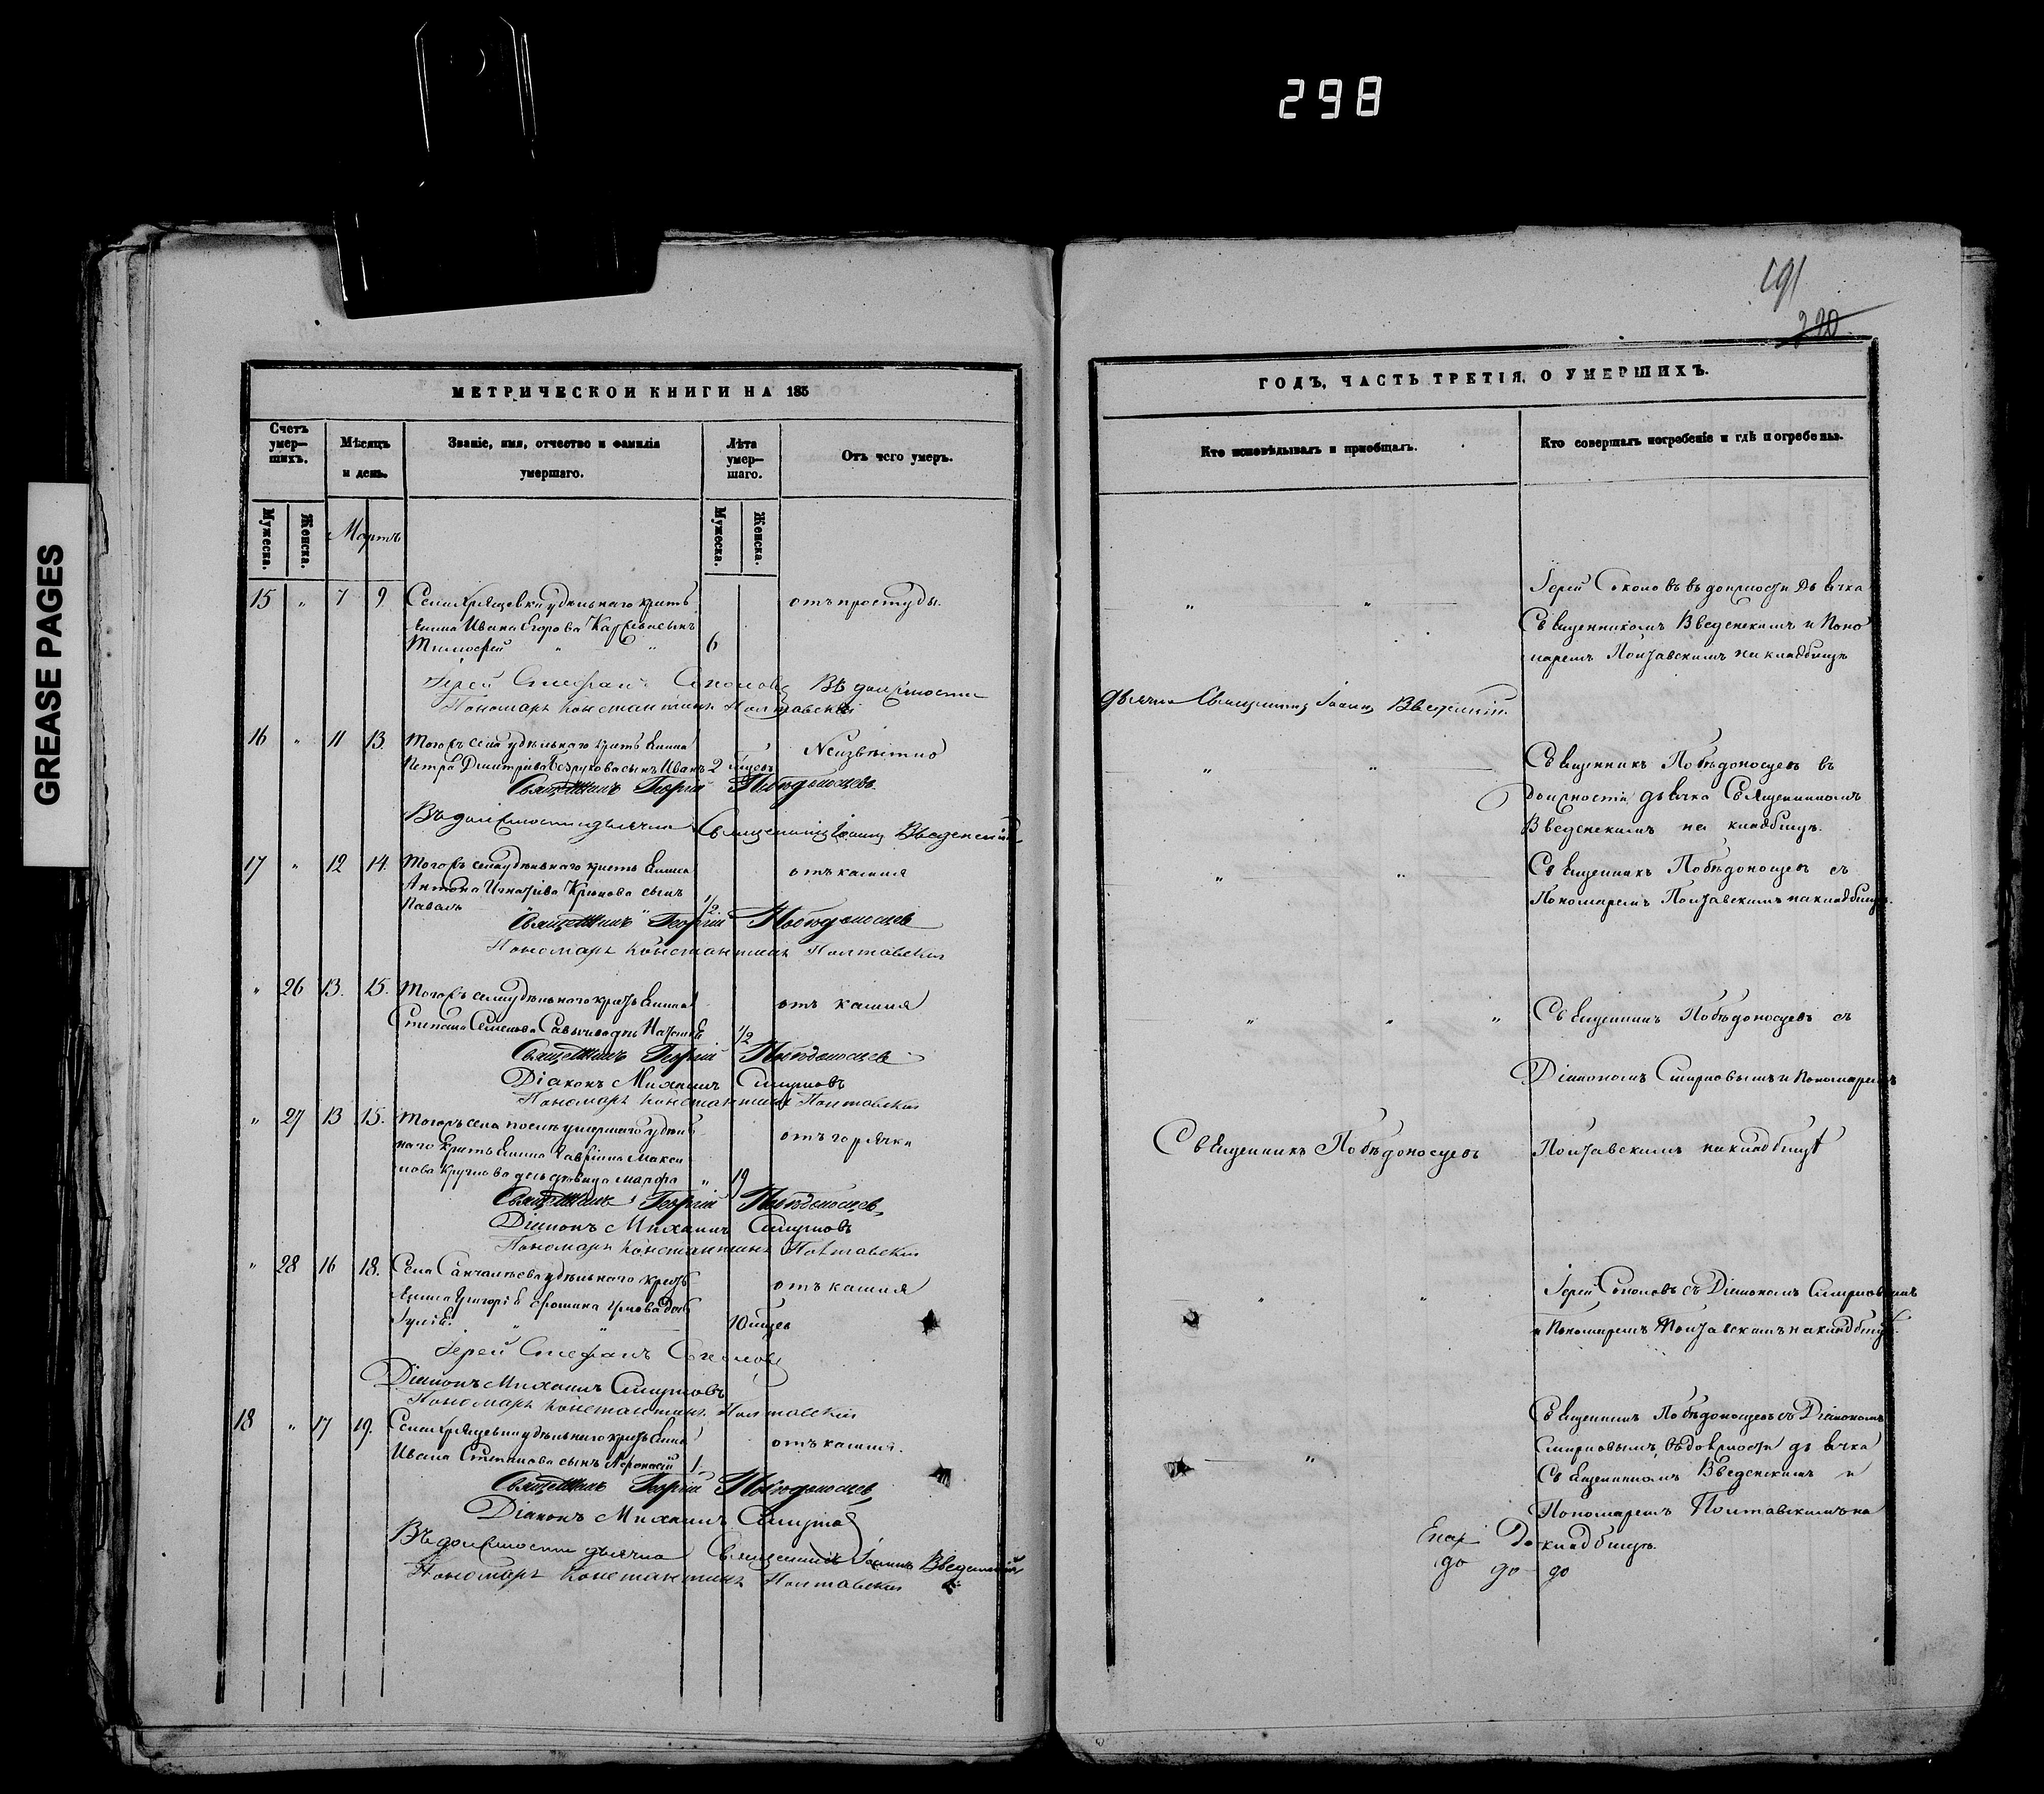 298
GREASE PAGES
191
220
МЕТРИЧЕСКОЙ КНИГИ НА 185
ГОДЪ, ЧАСТЬ ТРЕТІЯ, О УМЕРШИХЪ.
Счетъ умер-шихъ.
Мѣсяцъ и день.
Званіе, имя, отчество и фамилія умершаго.
Лѣта умер-шаго.
Отъ чего умеръ.
Кто исповѣдывалъ и пріобщалъ.
Кто совершалъ погребеніе и гдѣ погребены.
Мужеска.
Женска.
Мартъ
Мужеска.
Женска.
15 " 7 9 Села Хрящевки удѣльнаго кресть отъ простуды.
янина Ивана Егорова сынъ
Тимофей " " 6
Іерей Соколовъ въ должности дьячка
Священникомъ Введенскимъ и Поно
маремъ Полтавскимъ на кладбищѣ
Іерей Стефанъ Соколовъ Въ должности
дьячка Священникъ Іоаннъ Введенскій.
Пономарь Константинъ Полтавскій
16 " 11 13. Тогожъ села удѣльнаго кресть янина Неизвѣстно
Петра Дмитріева Безрукова сынъ Иванъ 2 мѣсяц
Священникъ Георгій Побѣдоносцевъ.
Въ должности дьячка Священникъ Іоаннъ Введенскій
Священникъ Побѣдоносцевъ въ
должности дьячка Священникомъ
Введенскимъ на кладбищѣ.
17 " 12 14. Тогожъ села удѣльнаго кресть янина отъ кашля
Антона Игнатьева Крюкова сынъ
Павелъ 1/2
Священникъ Георгій Побѣдоносцевъ
Пономарь Константинъ Полтавскій
Священникъ Побѣдоносцевъ съ
Пономаремъ Полтавскимъ на кладбищѣ.
" 26 13. 15. Тогожъ села удѣльнаго кресть янина отъ кашля
Степана Семенова дочь 1/2
Священникъ Георгій Побѣдоносцевъ
Діаконъ Михаилъ Смирновъ
Пономарь Константинъ Полтавскій
Священникъ Побѣдоносцевъ съ
Діакономъ Смирновымъ и Пономаремъ
" 27 13 15. Тогожъ села послѣ умершаго удѣль отъ горячки
наго кресть янина Гавріила Макси
мова дочь дѣвица Марфа " 19
Священникъ Георгій Побѣдоносцевъ
Діаконъ Михаилъ Смирновъ
Пономарь Константинъ Полтавскій
Священникъ Побѣдоносцевъ
Полтавскимъ на кладбищѣ
" 28 16 18. Села Санчалѣева удѣльнаго кресть отъ кашля
янина Григорія дочь
10 мѣсяц
Іерей Стефанъ Соколовъ
Діаконъ Михаилъ Смирновъ
Пономарь Константинъ Полтавскій
Іерей Соколовъ съ Діакономъ Смирновымъ
и Пономаремъ Полтавскимъ на кладбищѣ.
18 " 17 19. Села Хрящевки удѣльнаго кресть янина отъ кашля.
Ивана Степанова сынъ Афонасій 1.
Священникъ Георгій Побѣдоносцевъ
Діаконъ Михаилъ Смирновъ
Въ должности дьячка Священникъ Іоаннъ Введенскій
Пономарь Константинъ Полтавскій
Священникъ Побѣдоносцевъ съ Діакономъ
Смирновымъ въ должности дьячка
Священникомъ Введенскимъ и
Пономаремъ Полтавскимъ на
кладбищѣ.